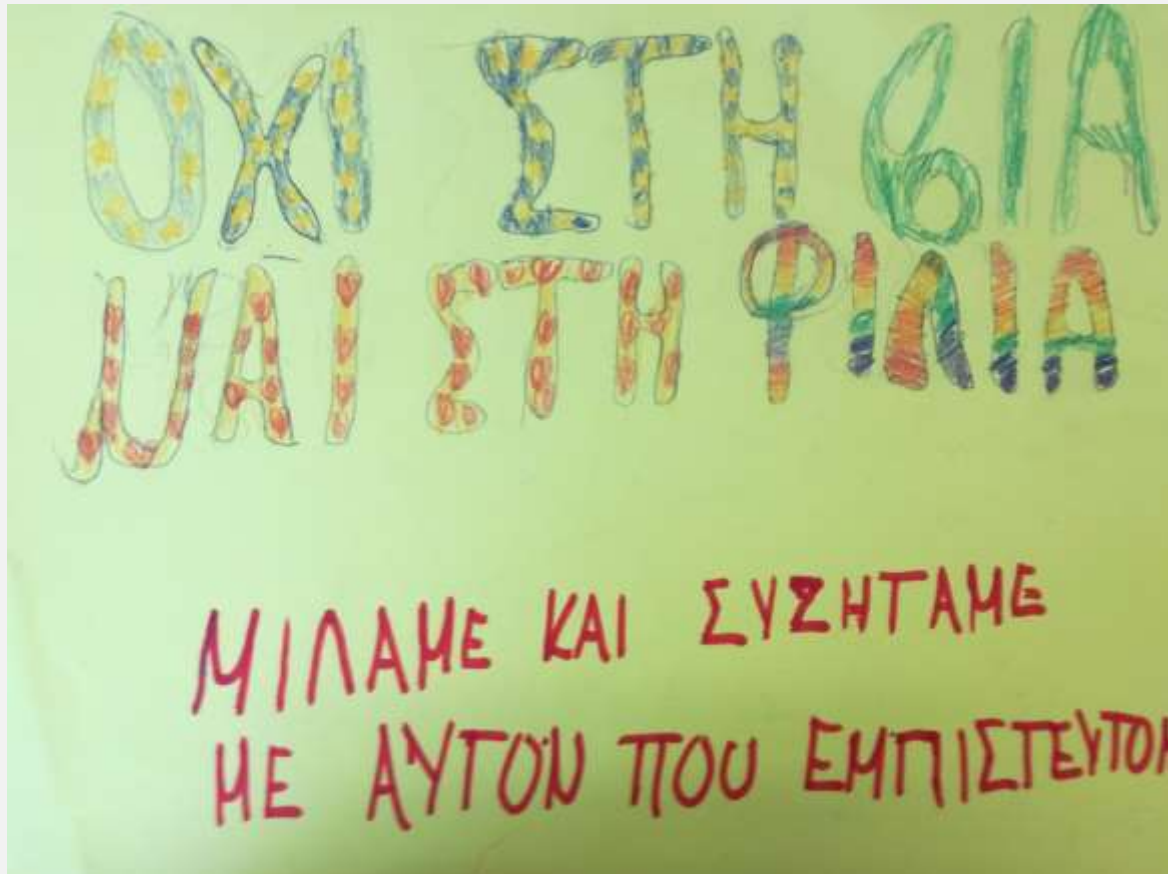 ΟΧΙ ΣΤΗ ΒΙΑ
μΑΙ ΣΤΗ ΦΙΛΙΑ
ΜΙΛΑΜΕ ΚΑΙ ΣΥΖΗΤΑΜΕ
ΜΕ ΑΥΤΟΝ ΠΟΥ ΕΜΠΙΣΤΕΥΤΟΜ